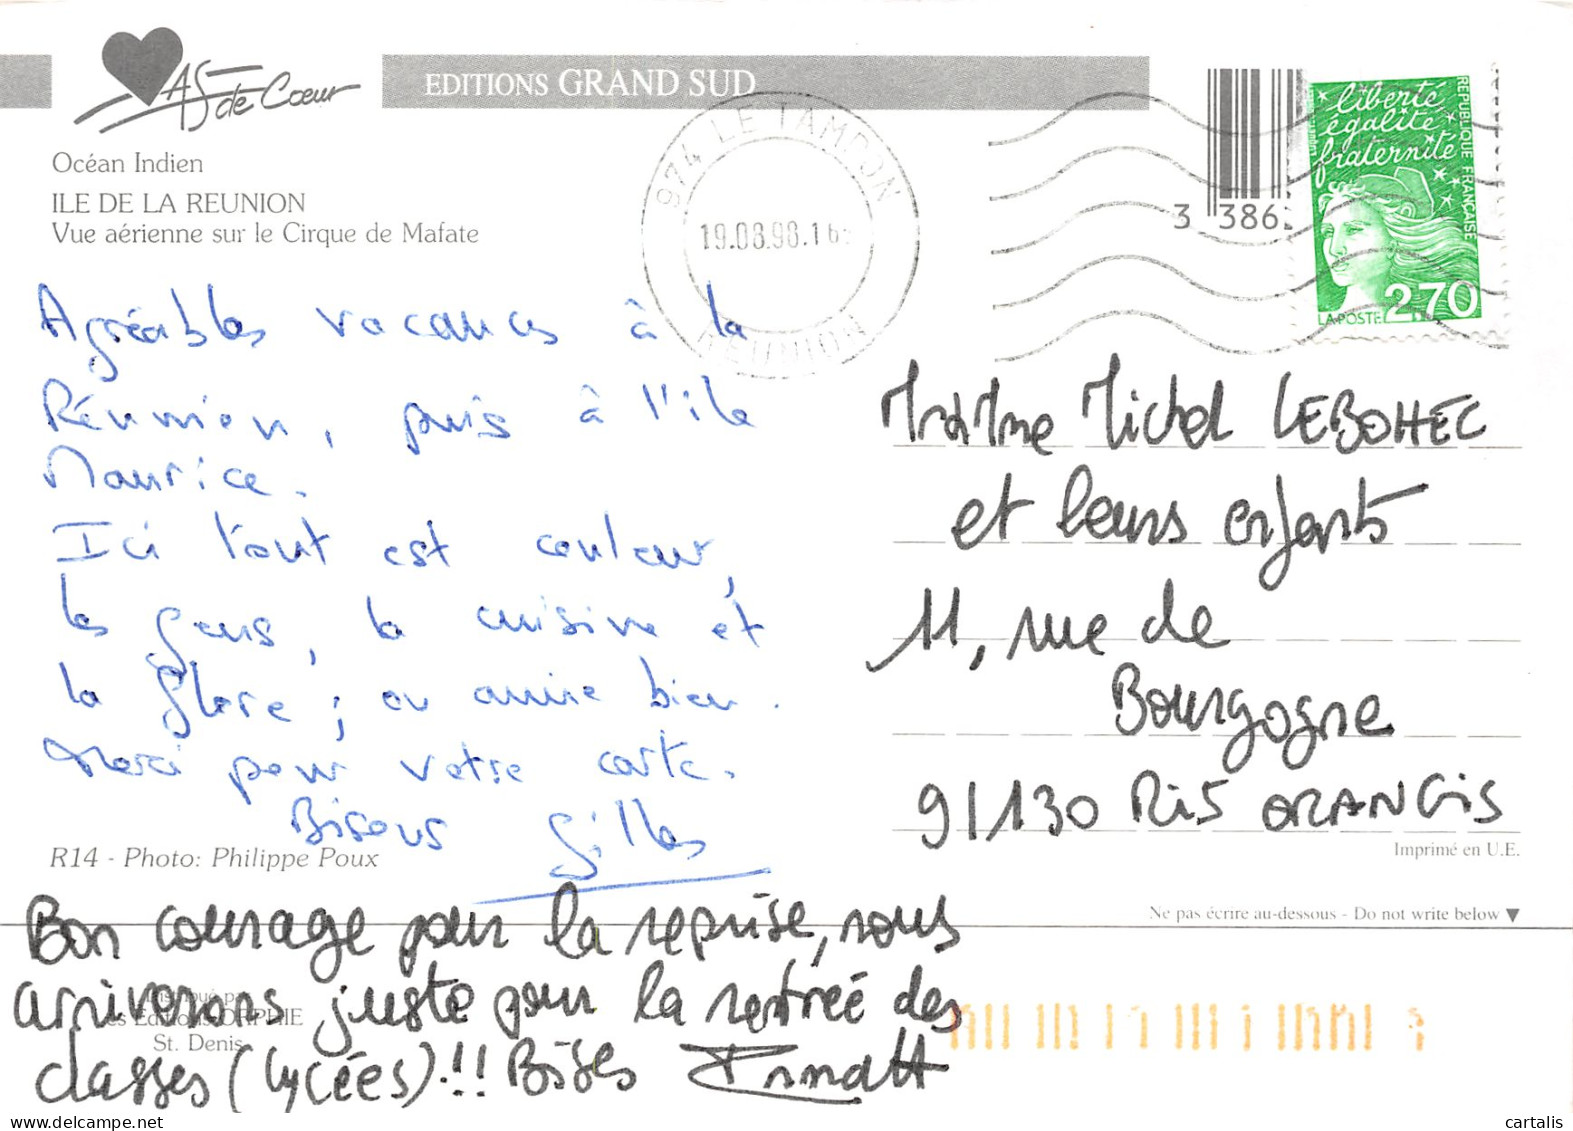 As de Coeur
EDITIONS GRAND SUD
Océan Indien
ILE DE LA REUNION
Vue aérienne sur le Cirque de Mafate
974 LE TAMPON
19.08.98.16
REUNION
3 386
liberté
égalité
fraternité
REPUBLIQUE FRANCAISE
LA POSTE 2,70
Agréables vacances à la
Réunion, puis à l'île
Maurice.
Ici tout est couleur,
les gens, la cuisine et
la flore ; on aime bien.
Merci pour votre carte.
Bisous Gilles
R14 - Photo: Philippe Poux
Mr et Mme Michel LEBOHEC
et leurs enfants
11, rue de
Bourgogne
91130 RIS ORANGIS
Imprimé en U.E.
Ne pas écrire au-dessous - Do not write below ▼
Bon courage pour la reprise, nous
arriverons juste pour la rentrée des
classes (lycées) !! Bises
Distribué par
Les Editions ORPHIE
St. Denis
cartalis